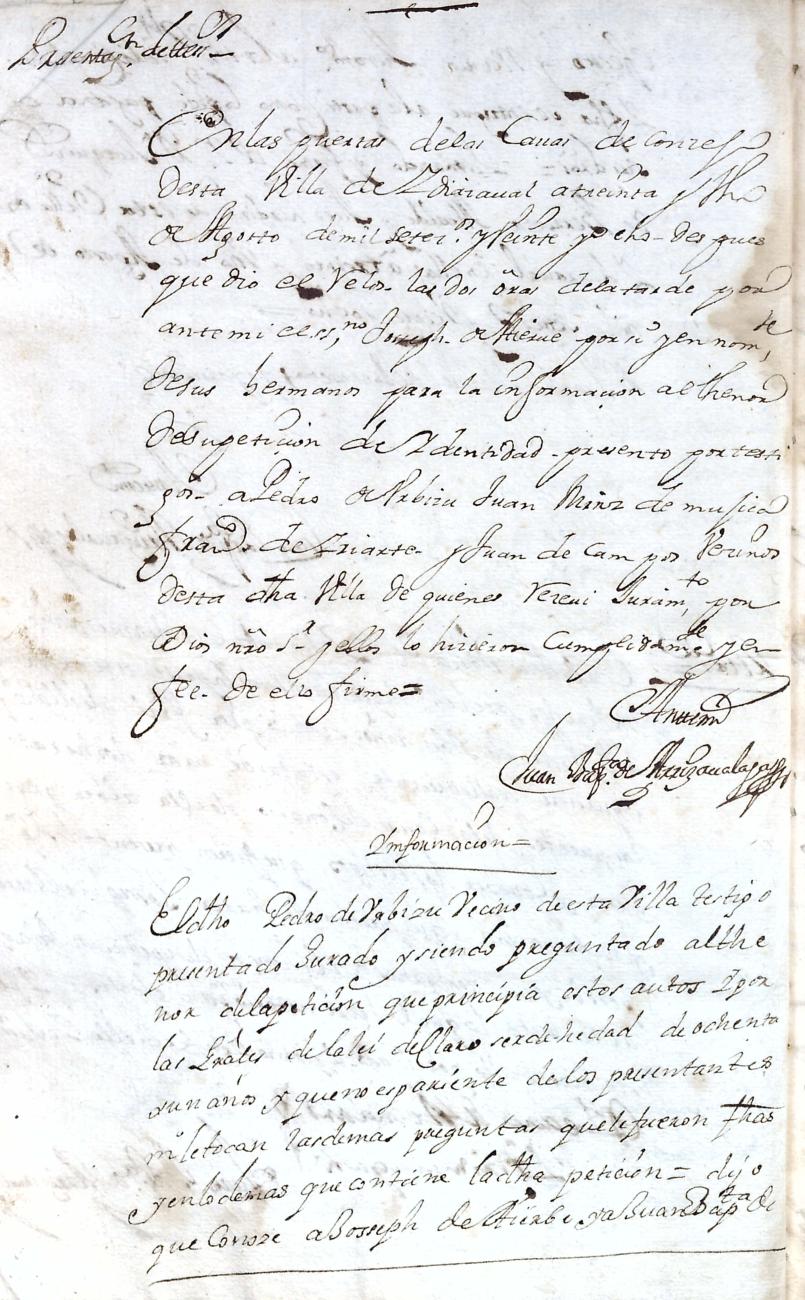 Presentaçn. de ttesº
En las puertas de las Casas de Conzejo
desta Villa de Zdiazaval a treinta y Uno
de Agosto de mil setecisºs y Veinte y ocho despues
que dio el Relox las dos oras de la tarde por
ante mi el essno Joseph de Yturve por si y en nomte
de sus hermanos para la informacion al thenor
de su peticion de Ydentidad presento por testi
gos a Pedro de Urbizu Juan Miñz de musica
Franco de Yriarte y Juan de Campos Vezinos
desta dha Villa de quienes Rezevi Juramto por
Dios nro Sr y ellos lo hizieron Cumplidamte y en
fee de ello firme =
Ante mi
Juan Bapta de Arrizavalaga
Ynformacion =
El dho Pedro de Urbizu Vecino de esta Villa testigo
presentado Jurado y siendo preguntado al the
nor de la peticion que principia estos autos y por
las Grâles de la lei declaro ser de hedad de ochenta
y un años y que no es pariente de los presentantes
ni le tocan las demas preguntas que le fueron fhas
y en lo demas que contiene la dha peticion = dijo
que Conoze a Bosseph de Yturbe y a Buan Bapta de